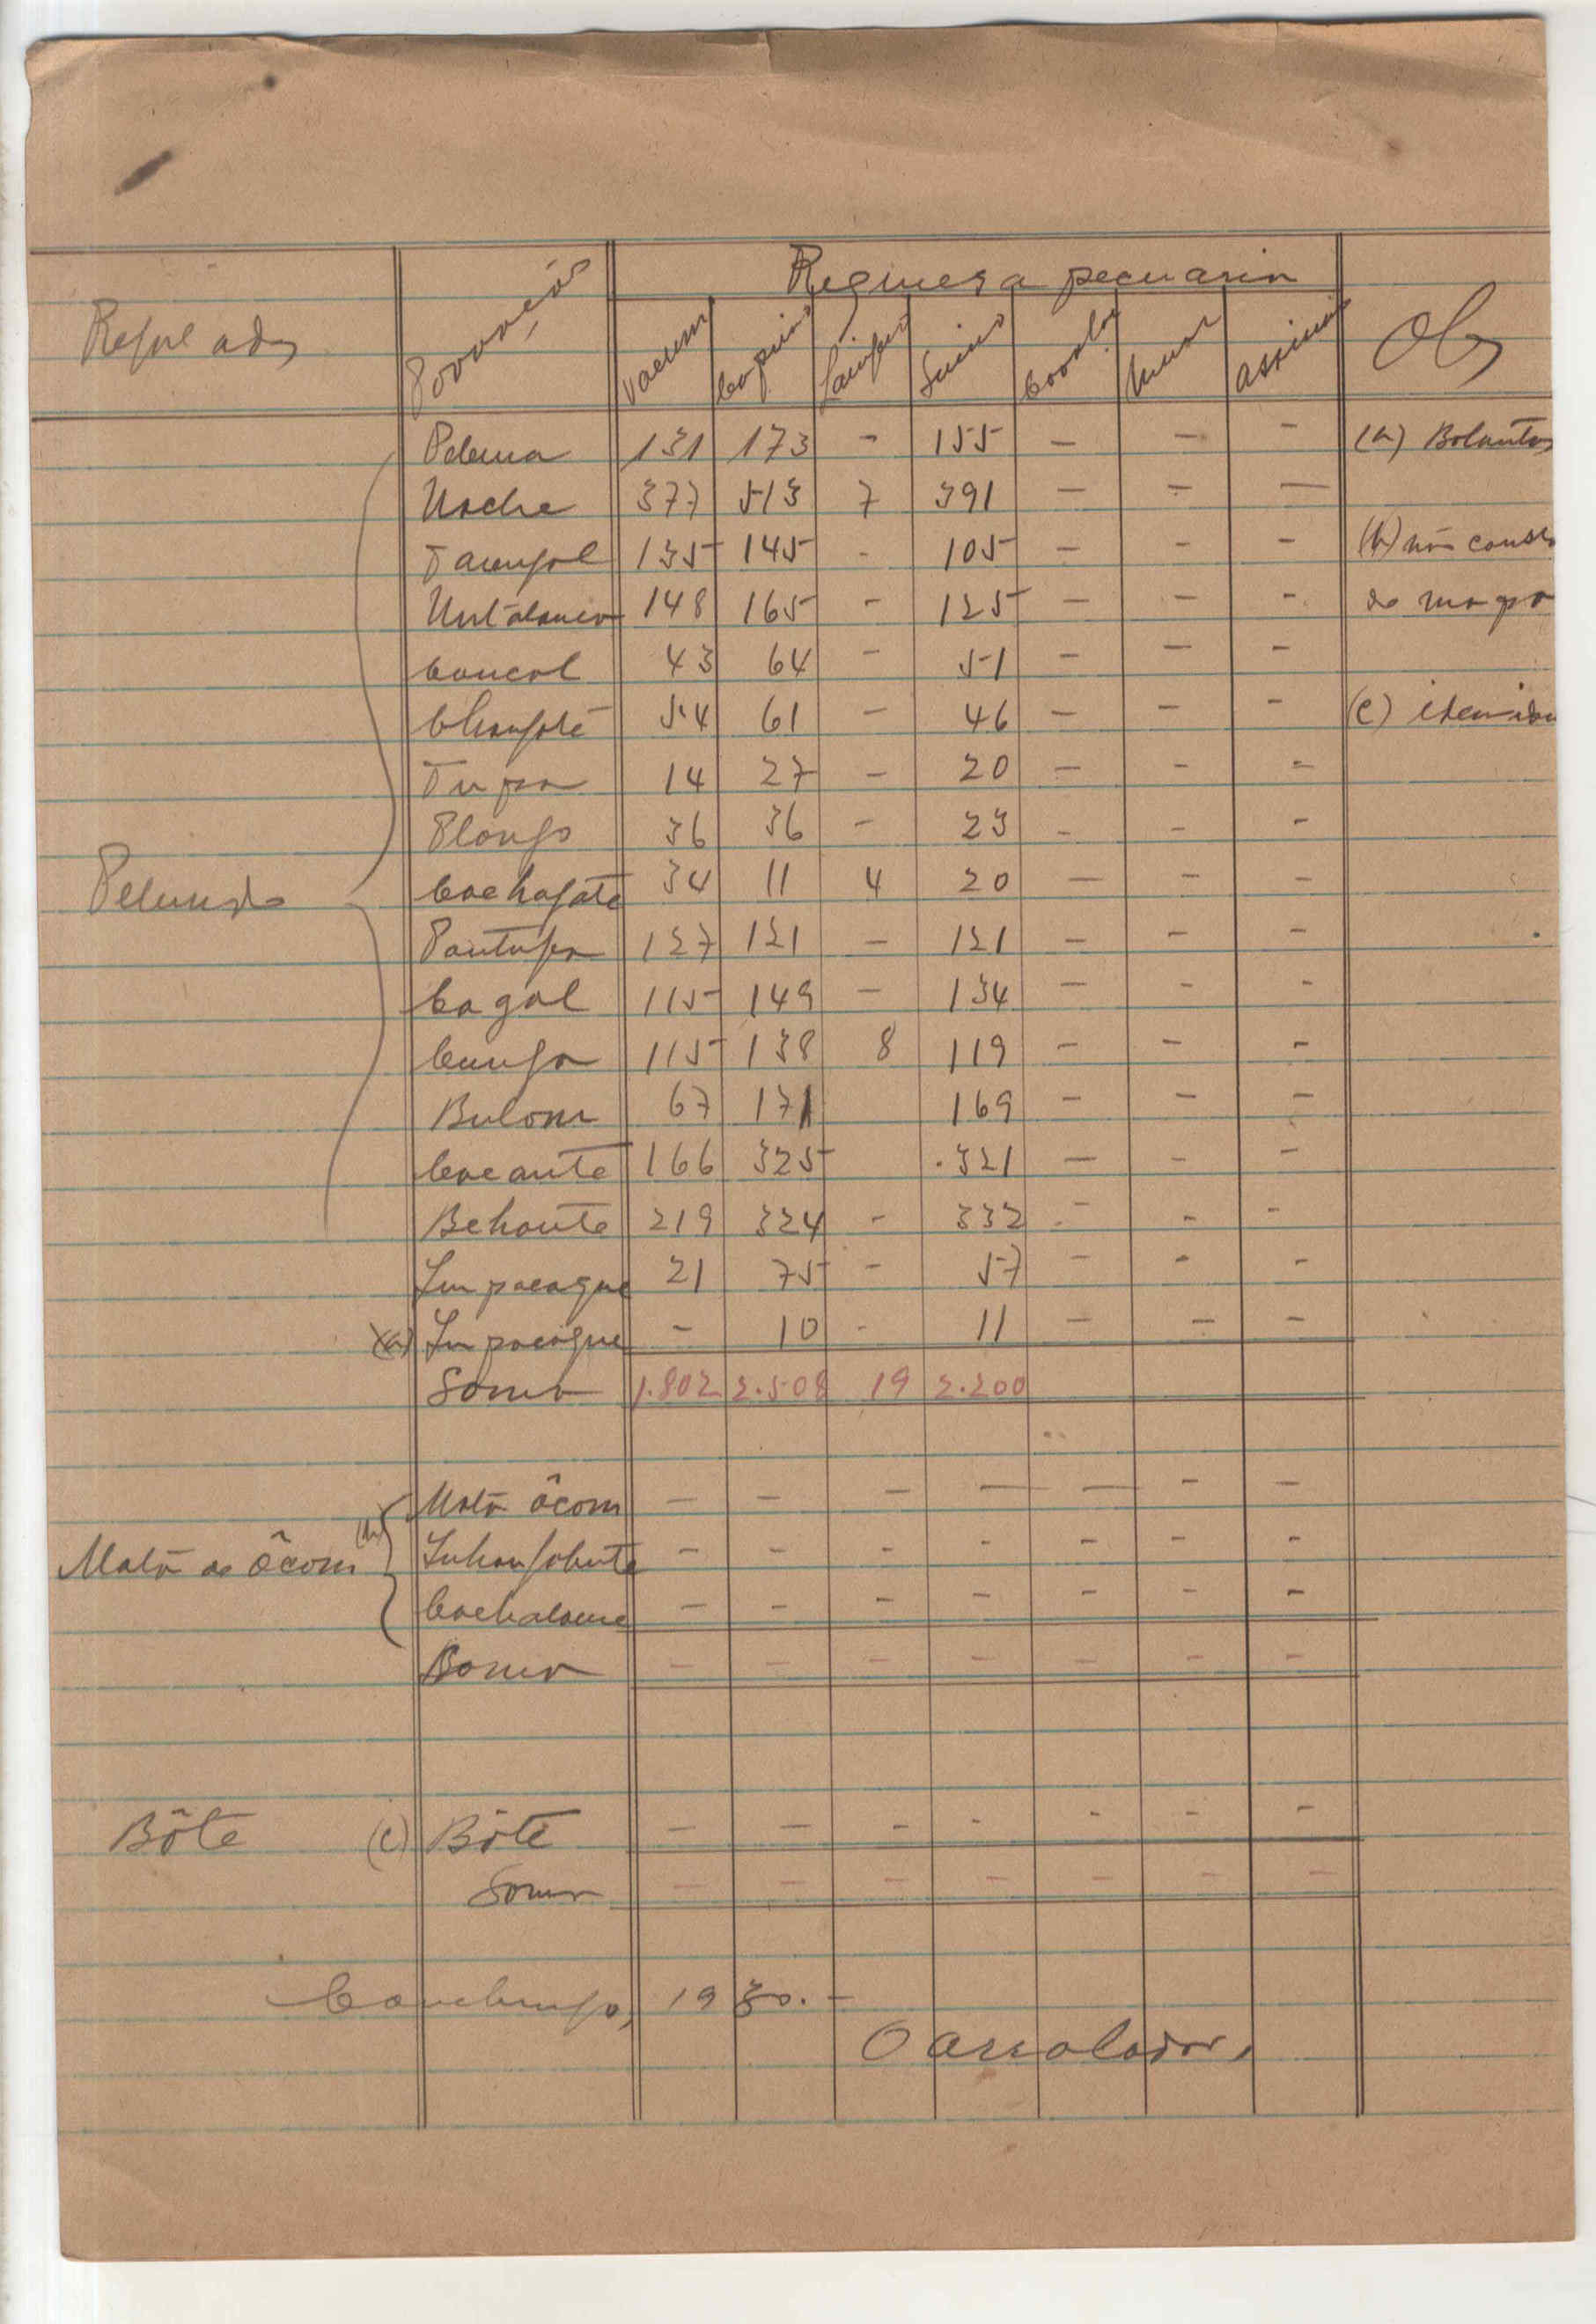 Regulados Povoações Riqueza pecuaria Obs
Vacum Caprino Lanígero Suino Cavalar Muar Assinino
Pelund 131 173 - 155 - - - (a) Balantas
377 513 7 391 - - -
135 145 - 105 - - - (b) não consta
148 165 - 125 - - - do mapa
Cancal 43 64 - 51 - - -
54 61 - 46 - - - (c) idem idem
Tupa 14 27 - 20 - - -
Plongo 36 36 - 23 - - -
Pelundo Cachafate 34 11 4 20 - - -
Pantufa 127 121 - 121 - - -
Cagal 115 149 - 134 - - -
Cunga 115 138 8 119 - - -
Bulom 67 171 169 - - -
Cacante 166 325 321 - - -
Bchante 219 324 - 332 - - -
Impacague 21 75 - 57 - - -
(a) Impacague - 10 - 11 - - -
Soma 1.802 2.508 19 2.200
Mata ôcom - - - - - - -
Mata de ôcom (b) - - - - - - -
Cachalame - - - - - - -
Soma - - - - - - -
Bôte (c) Bôte - - - - - - -
Soma - - - - - - -
Canchungo, 1930. -
O arrolador,